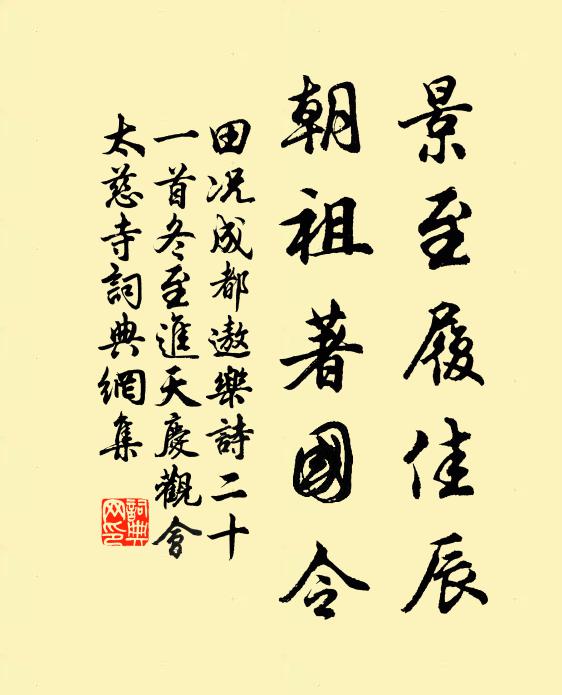 景至履佳辰
朝祖著國令
田況成都遨樂詩二十
一首冬至進天慶觀會
太慈寺詞典網集
詞典
网印